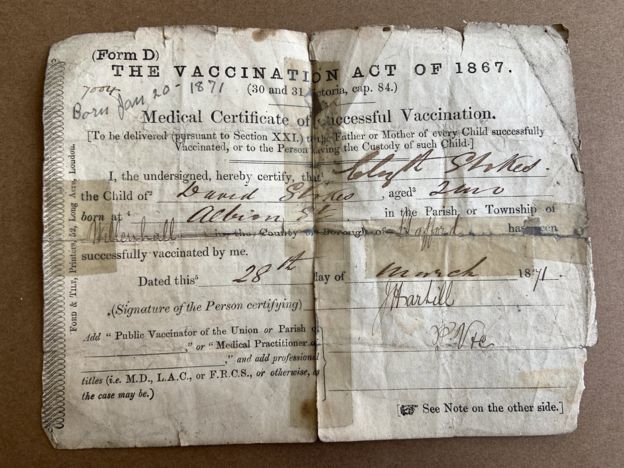 (Form D)
THE VACCINATION ACT OF 1867.
(30 and 31 ictoria, cap. 84.)
Born Jan 20 - 1871
Medical Certificate of Successful Vaccination.
[To be delivered (pursuant to Section XXI.) to the Father or Mother of every Child successfully
Vaccinated, or to the Person having the Custody of such Child.]
I, the undersigned, hereby certify, that Stokes.
the Child of David Stokes, aged 2 mo
born at Albion St in the Parish, or Township of
Willenhall in the County or Borough of Stafford has been
successfully vaccinated by me.
Dated this 28th day of March 1871.
J Hartill
(Signature of the Person certifying)
Add "Public Vaccinator of the Union or Parish of
," or "Medical Practitioner of
," and add professional
titles (i.e. M.D., L.A.C., or F.R.C.S., or otherwise, as
the case may be.)
[☞ See Note on the other side.]
FORD & TILT, Printers, 52, Long Acre, London.